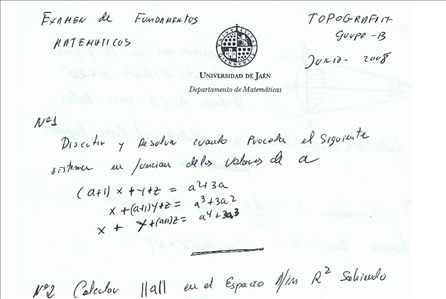 EXAMEN de FUNDAMENTOS
MATEMATICOS
UNIVERSIDAD DE JAÉN
Departamento de Matemáticas
TOPOGRAFIA
GRUPO-B
JUNIO - 2008
Nº1
Discutir y Resolver cuando Proceda el Siguiente
sistema en funcion de los valores de a
(a+1) x + y + z = a²+3a
x + (a+1)y + z = a³+3a²
x + y + (a+1)z = a⁴+3a³
Nº2 Calcular ||a|| en el Espacio R² Sabiendo